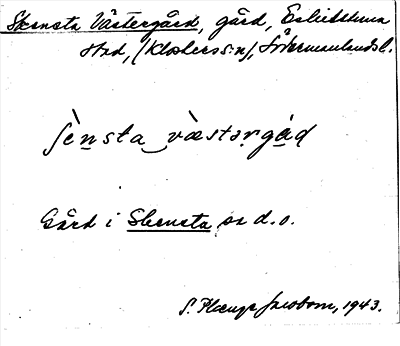 Skensta Västergård, gård, Eskilstuna
stad, (Klosters sn), Södermanlands l.
ʃènsta vàstərgàḍ
Gård i Skensta se d.o.
S. 1943.